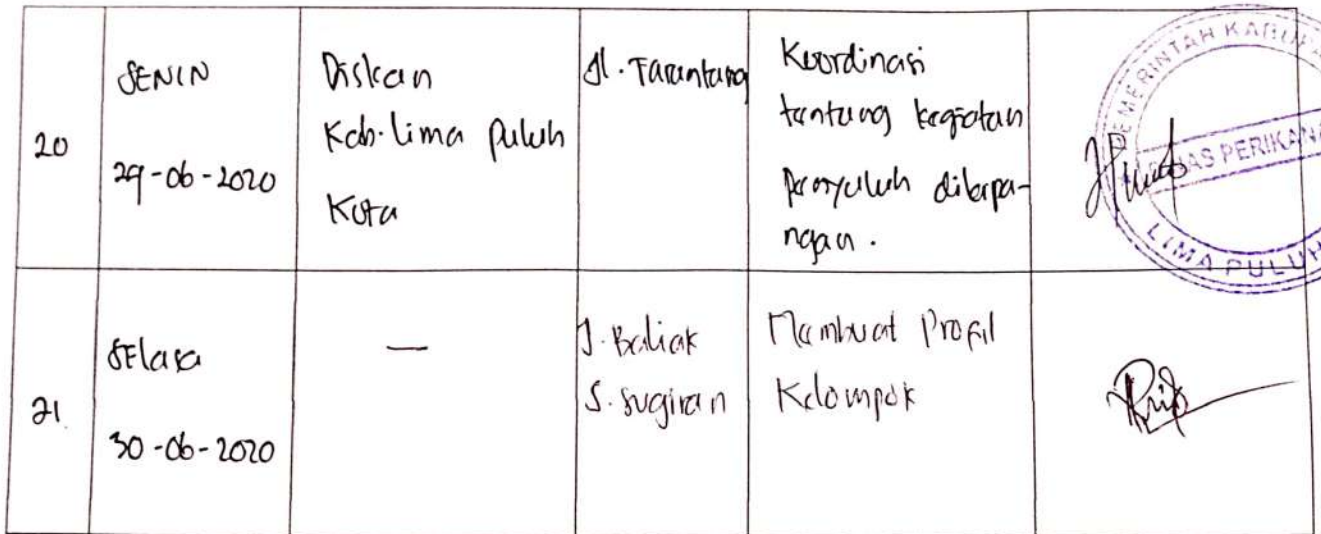 20
SENIN
29-06-2020
Diskan
Kab. Lima Puluh
Kota
Jl. Tarantang
Koordinasi
tentang kegiatan
penyuluh dilapa-
ngan.
PEMERINTAH KABUPA
DINAS PERIKANA
LIMA PULUH
21.
SElasa
30-06-2020
—
J. Baliak
S. Sugiran
Membuat Profil
Kelompok